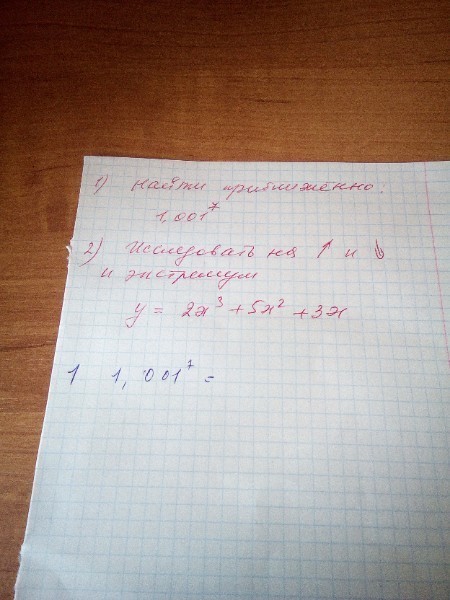 1) Найти приближённо:
1,001⁷
2) Исследовать на ↑ и ↓
и экстремум
y = 2x³ + 5x² + 3x
1 1,001⁷ =